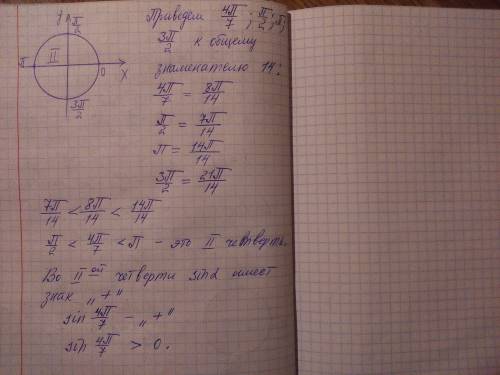 Y
π/2
II
π
0
X
3π/2
Приведем 4π/7 ; π/2 ; π ;
3π/2 к общему
знаменателю 14:
4π/7 = 8π/14
π/2 = 7π/14
π = 14π/14
3π/2 = 21π/14
7π/14 < 8π/14 < 14π/14
π/2 < 4π/7 < π – это II четверть.
Во II ой четверти sinα имеет
знак „+"
sin 4π/7 – „+"
sin 4π/7 > 0.